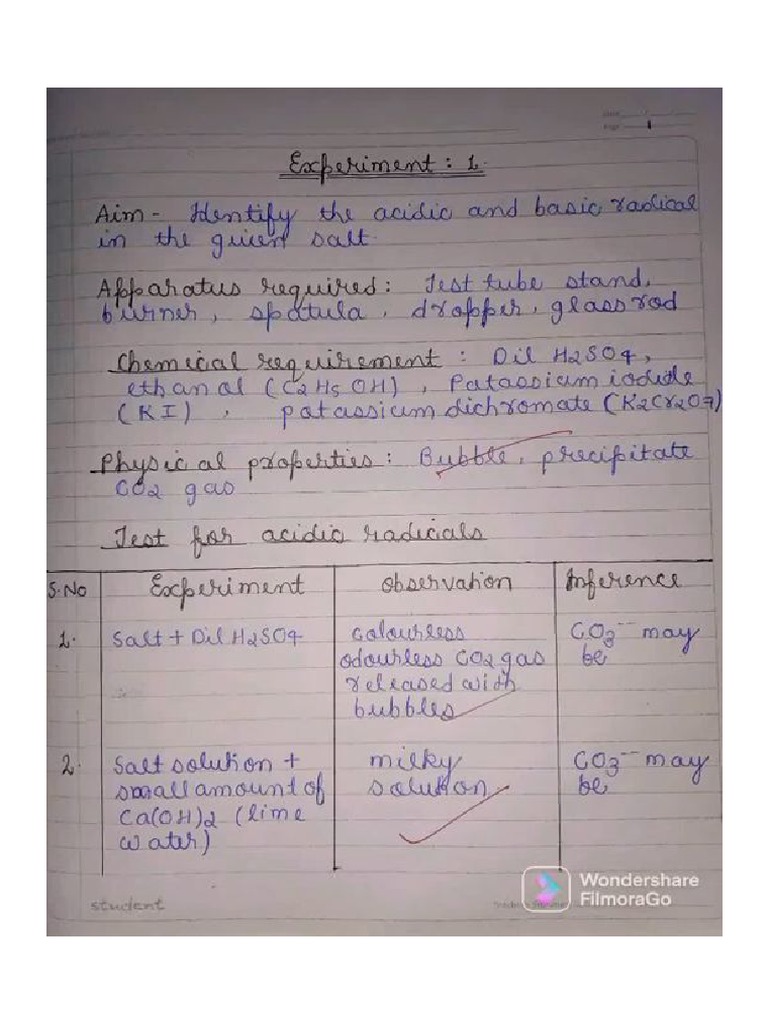 Experiment : 1.
Aim - Identify the acidic and basic radical
in the given salt.
Apparatus required : Test tube stand,
burner, spatula, dropper, glass rod
Chemical requirement : Dil H2SO4,
ethanol (C2H5OH), Patassium iodide
(KI), patassium dichromate (K2Cr2O7)
Physical properties : Bubble, precipitate
CO2 gas
Test for acidic radicals
S.No Experiment Observation Inference
1. Salt + Dil H2SO4 Colourless CO3-- may
odourless CO2 gas be
released with
bubbles
2. Salt solution + milky CO3-- may
small amount of solution be
Ca(OH)2 (lime
water)
student
Wondershare
FilmoraGo